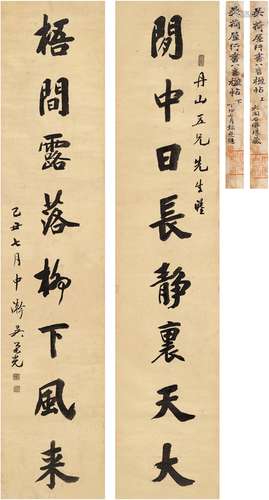 閒中日長靜裏天大
丹山五兄先生
梧間露落柳下風来
乙丑七月中澣吳荣光
吳荷屋行書八言楹帖 上
吳荷屋行書八言楹帖 下